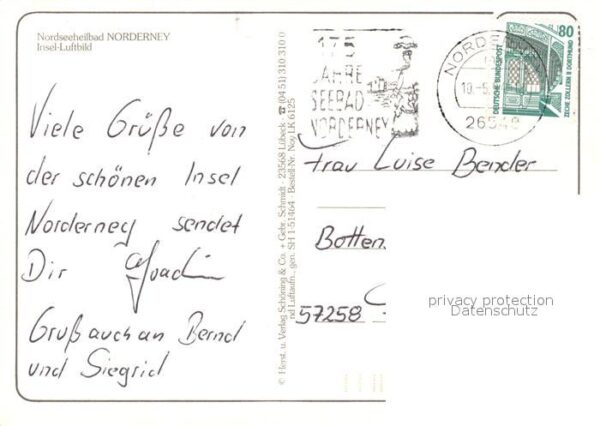 Nordseeheilbad NORDERNEY
Insel-Luftbild
Viele Grüße von
der schönen Insel
Norderney sendet
Dir Joachim
Gruß auch an Bernd
und Siegrid
© Herst. u. Verlag Schöning & Co. + Gebr. Schmidt · 23568 Lübeck · ☎ (04 51) 310 310 0
nd Luftaufn., gen. SH 1-51464 · Bestell-Nr. Noy LK 6125
175
JAHRE
SEEBAD
NORDERNEY
NORDERN
26548
80
DEUTSCHE BUNDESPOST
ZECHE ZOLLERN II DORTMUND
Frau Luise Bender
Botten
57258
privacy protection
Datenschutz